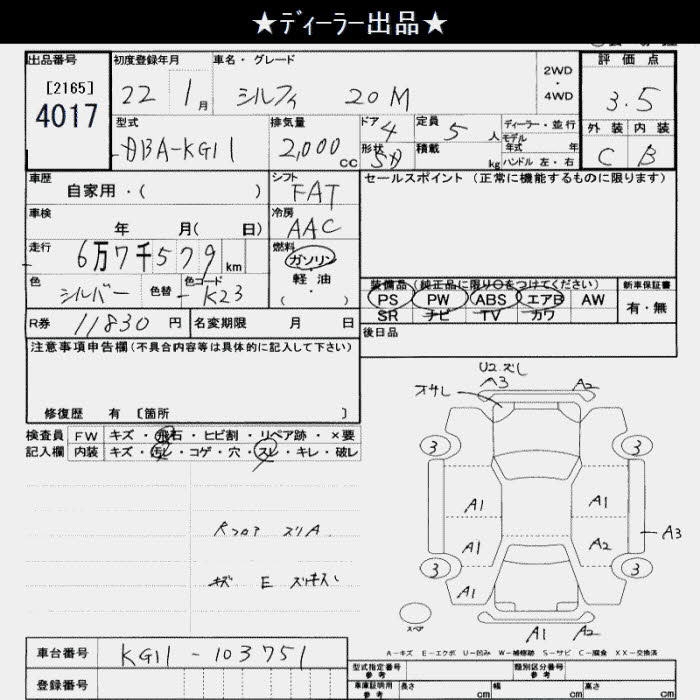 ★ディーラー出品★
出品番号 初度登録年月 車名・グレード 2WD・4WD 評価点
[2165]
4017 22 1月 シルフィ 20M 3.5
型式 排気量 ドア 4 定員 5人 ディーラー・並行 外装 内装
DBA-KG11 2,000cc 形状 SD 積載 kg モデル年式 年 ハンドル 左・右 C B
車歴 シフト セールスポイント (正常に機能するものに限ります)
自家用・( ) FAT
車検 冷房
年 月( 日) AAC
走行 燃料
6万7千579km ガソリン
軽油
( )
色 色替 色コード 装備品 (純正品に限り○をつけてください) 新車保証書
シルバー - K23 PS PW ABS エアB AW 有・無
SR ナビ TV カワ
R券 11830円 名変期限 月 日 後日品
注意事項申告欄(不具合内容等は具体的に記入して下さい)
修復歴 有 [箇所 ]
検査員 FW キズ・飛石・ヒビ割・リペア跡・×要
記入欄 内装 キズ・汚レ・コゲ・穴・スレ・キレ・破レ
A3 A2
3 3
A1 A1
A3
A1 A2
3 3
A1
スペア
A1 A2
A-キズ E-エクボ U-凹み W-補修跡 S-サビ C-腐食 XX-交換済
車台番号 KG11-103751
登録番号
型式指定番号 参考 類別区分番号 参考
車庫証明用 参考 長さ cm 幅 cm 高さ cm